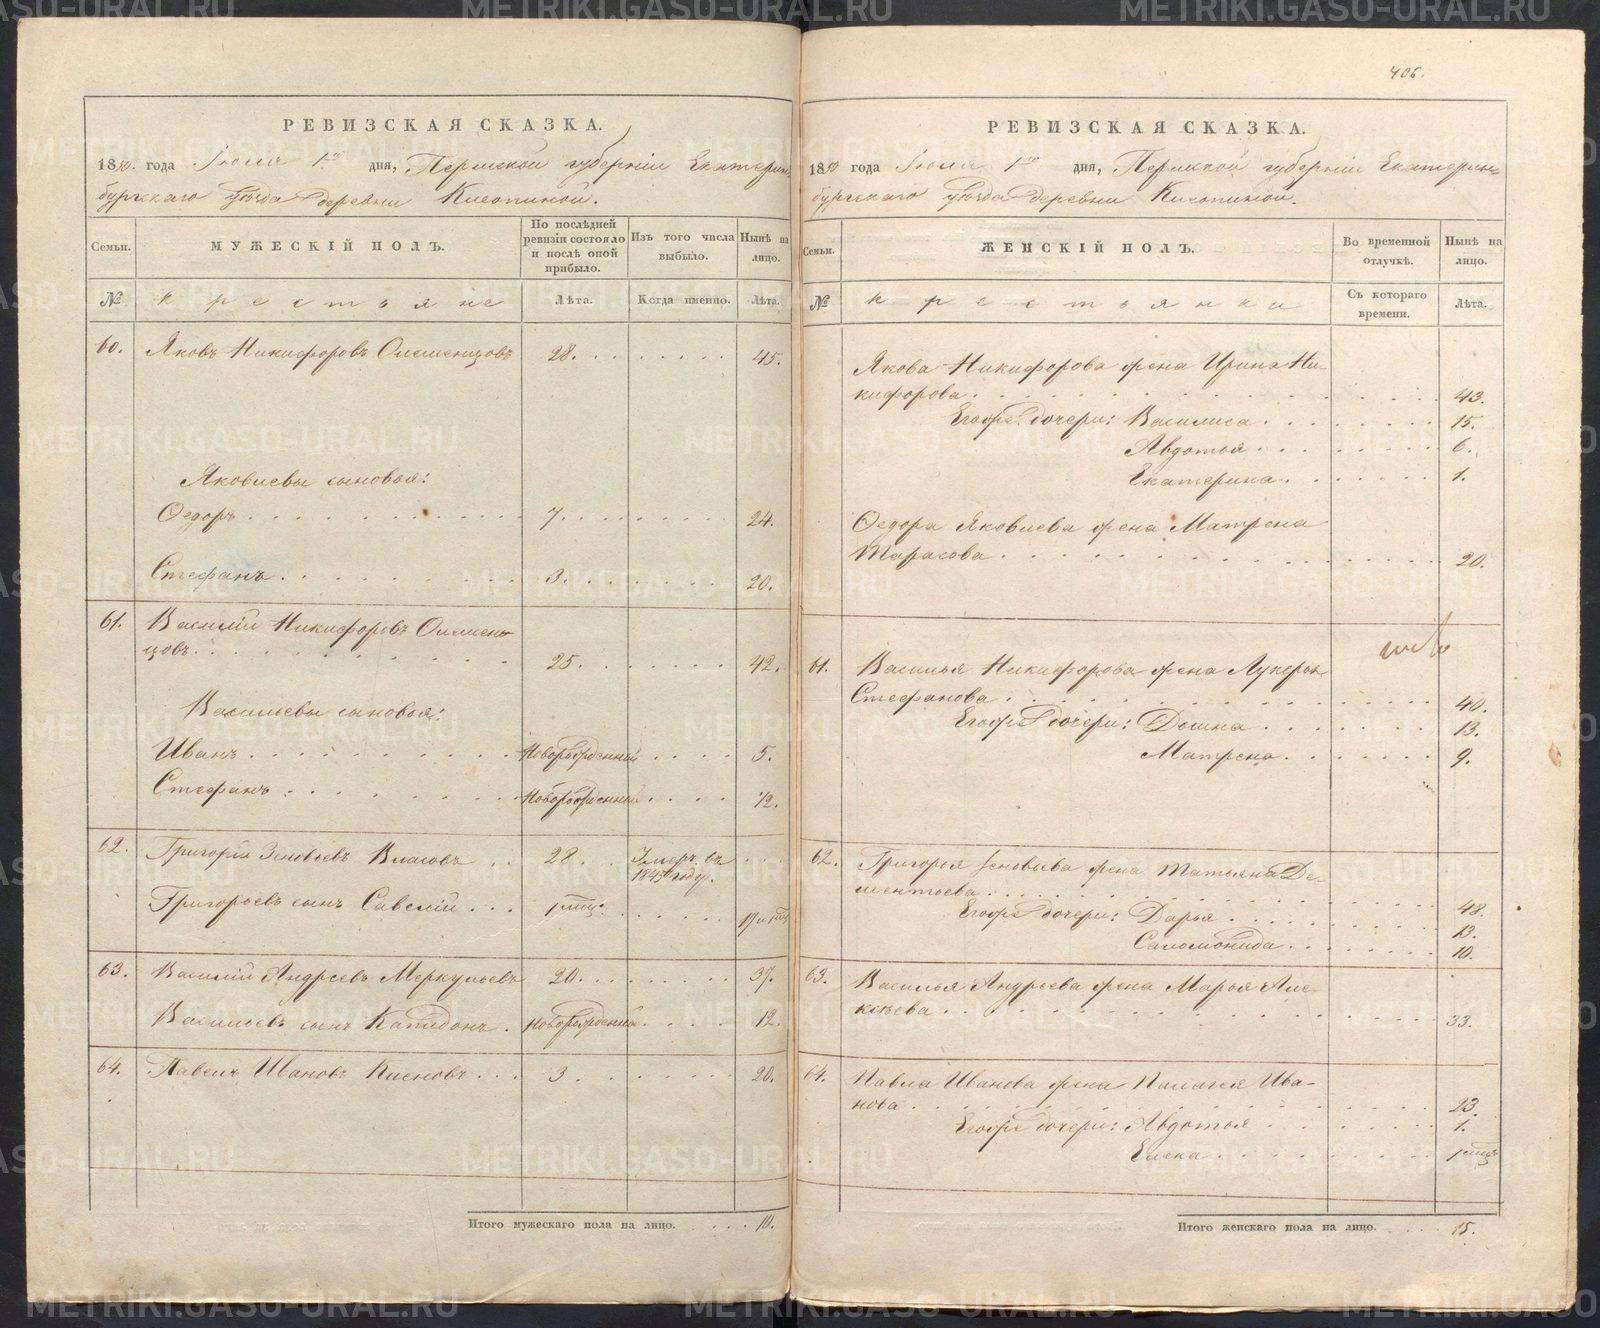 406.
РЕВИЗСКАЯ СКАЗКА.
1850. года Іюля 1го дня, Пермской губерніи Екатерин-
бургскаго уѣзда деревни
Семьи.
МУЖЕСКІЙ ПОЛЪ.
По послѣдней ревизіи состояло и послѣ оной прибыло.
Изъ того числа выбыло.
Нынѣ на лицо.
№
крестьяне
Лѣта.
Когда именно.
Лѣта.
60. Яковъ Никифоровъ 28. 45.
Яковлевы сыновья:
Ѳедоръ 7. 24.
Стефанъ 3. 20.
61. Василій Никифоровъ
цовъ. 25. 42.
Васильевы сыновья:
Иванъ Новорожденный 5.
Стефанъ Новорожденный 12.
62. Григорій Зеновьевъ Власовъ 28. Умеръ въ 1845 году.
Григорьевъ сынъ Савелій 1 мѣц.
63. Василій Андреевъ Меркульевъ 20. 37.
Васильевъ сынъ Новорожденный 12.
64. Павелъ Ивановъ 3. 20.
Итого мужескаго пола на лицо. 10.
РЕВИЗСКАЯ СКАЗКА.
1850 года Іюля 1го дня, Пермской губерніи Екатерин-
бургскаго уѣзда деревни
Семьи.
ЖЕНСКІЙ ПОЛЪ.
Во временной отлучкѣ.
Нынѣ на лицо.
№
крестьянки
Съ котораго времени.
Лѣта.
Якова Никифорова жена Ирина Ни-
кифорова 43.
Егоже дочери: Василиса 15.
Авдотья 6.
Екатерина 1.
Ѳедора Яковлева жена Матрена
Тарасова 20.
61. Василья Никифорова жена Лукерья
Стефанова 40.
Егоже дочери: Домна 13.
Матрена 9.
62. Григорья Зеновьева жена Татьяна Де-
ментьева 48.
Егоже дочери: Дарья 13.
Саломонида 10.
63. Василья Андреева жена Марья Але-
ксѣева 33.
64. Павла Иванова жена Палагея Ива-
нова 23.
Егоже дочери: Авдотья 1.
Елена 1 мѣц
Итого женскаго пола на лицо. 15.
METRIKI.GASO-URAL.RU